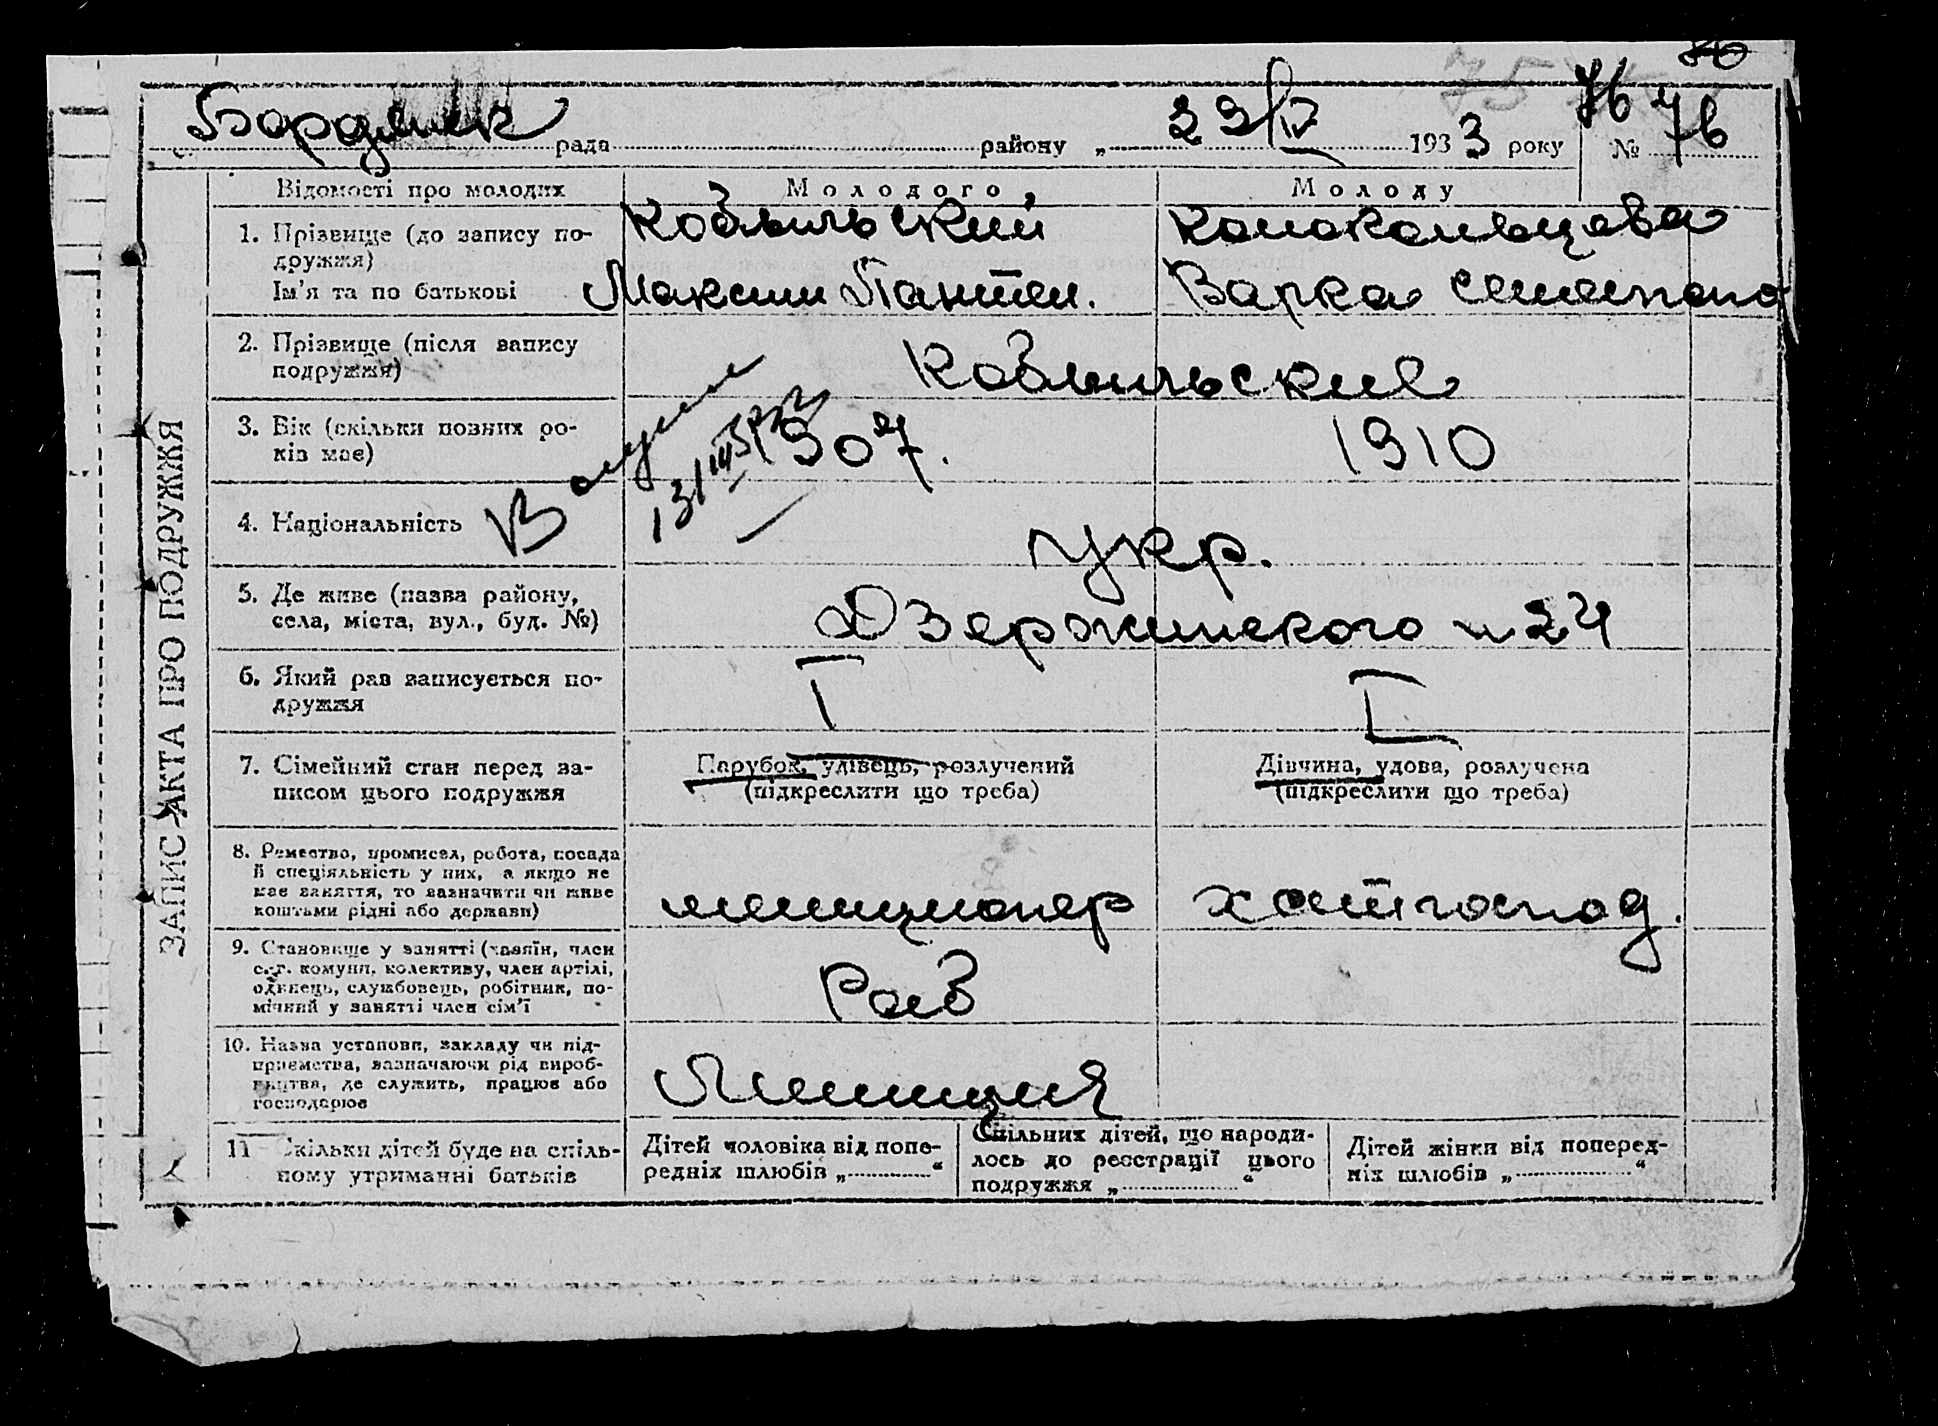 76
Бердянськ рада района „ 29/IV 1933 року № 76
ЗАПИС АКТА ПРО ПОДРУЖЖЯ
Відомості про молодих Молодого Молоду
1. Прізвище (до запису по-
дружжя)
Кобыльский
Ім'я та по батькові
Максим Пантел. Варка
2. Прізвище (після запису
подружжя)
3. Вік (скільки повних ро-
ків має)
1907. 1910
4. Національність
укр.
5. Де живе (назва району,
села, міста, вул., буд. №)
Дзержинского 24
6. Який раз записується по-
дружжя
I I
7. Сімейний стан перед за-
писом цього подружжя
Парубок, удівець, розлучений
(підкреслити що треба)
Дівчина, удова, розлучена
(підкреслити що треба)
8. Ремество, промисел, робота, посада
й спеціяльність у них, а якщо не
має заняття, то зазначити чи живе
коштами рідні або держави)
милиционер хатгоспод.
9. Становище у занятті (хазяїн, член
с.-г. комуни, колективу, член артілі,
одинець, службовець, робітник, по-
мічний у занятті член сім'ї
Раб
10. Назва установи, закладу чи під-
приємства, зазначаючи рід вироб-
ництва, де служить, працює або
господарює
Милиция
11 Скільки дітей буде на спіль-
ному утриманні батьків
Дітей чоловіка від попе-
редніх шлюбів „ “
Спільних дітей, що народи-
лось до реєстрації цього
подружжя „ “
Дітей жінки від поперед-
ніх шлюбів „ “